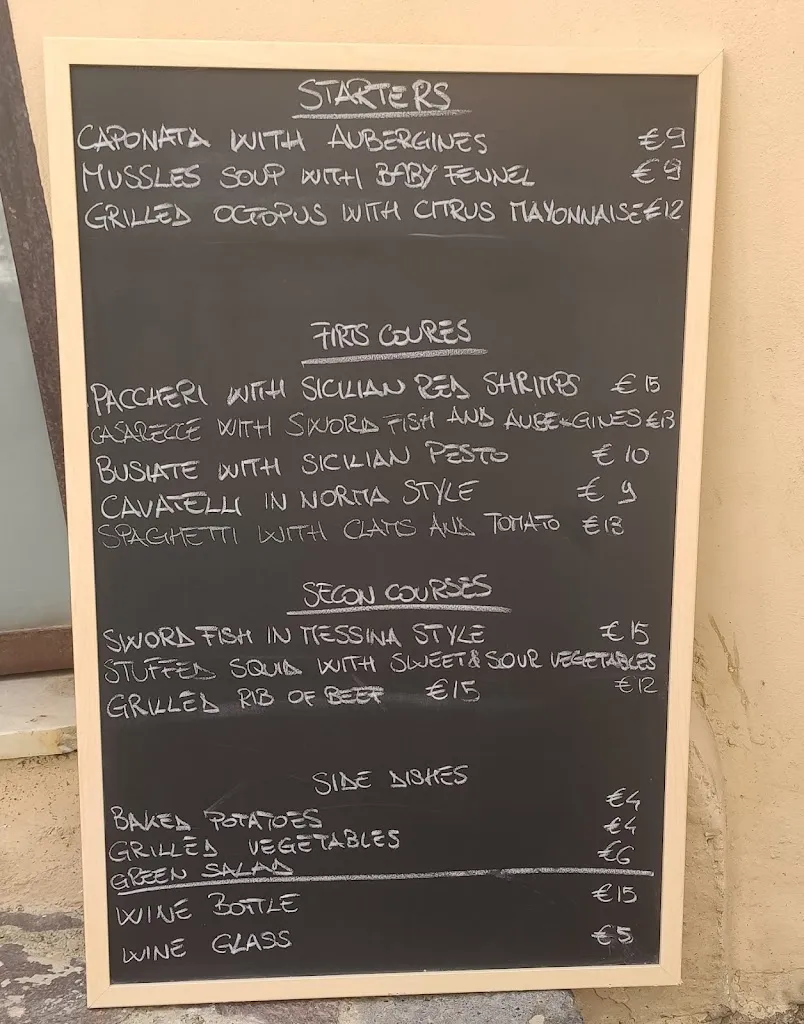 STARTERS
CAPONATA WITH AUBERGINES €9
MUSSLES SOUP WITH BABY FENNEL €9
GRILLED OCTOPUS WITH CITRUS MAYONNAISE €12
FIRTS COURES
PACCHERI WITH SICILIAN RED SHRIMPS €15
CASARECCE WITH SWORD FISH AND AUBERGINES €13
BUSIATE WITH SICILIAN PESTO €10
CAVATELLI IN NORMA STYLE €9
SPAGHETTI WITH CLAMS AND TOMATO €13
SECON COURSES
SWORD FISH IN MESSINA STYLE €15
STUFFED SQUID WITH SWEET & SOUR VEGETABLES
€12
GRILLED RIB OF BEEF €15
SIDE DISHES
BAKED POTATOES €4
GRILLED VEGETABLES €4
GREEN SALAD €6
WINE BOTTLE €15
WINE GLASS €5